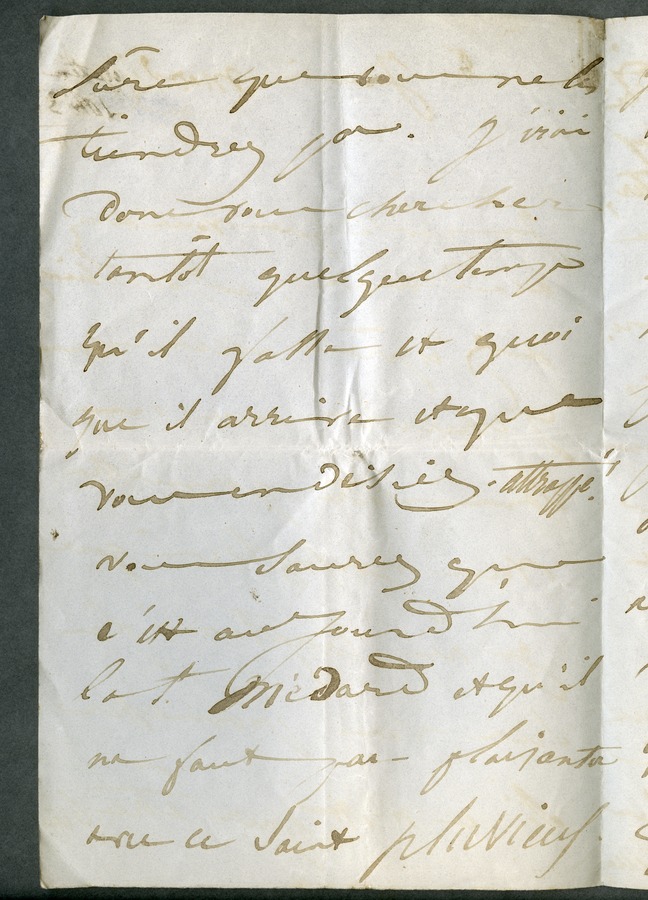 Sûre que vous ne les
tiendrez pas. J'irai
Donc vous chercher
tantôt quelque temps
qu'il fasse et quoi
que il arrive et que
vous en disiez. attrappe!
vous saurez que
c'est aujourd'hui
la St. Médard et qu'il
ne faut pas plaisanter
avec ce Saint pluvieux.